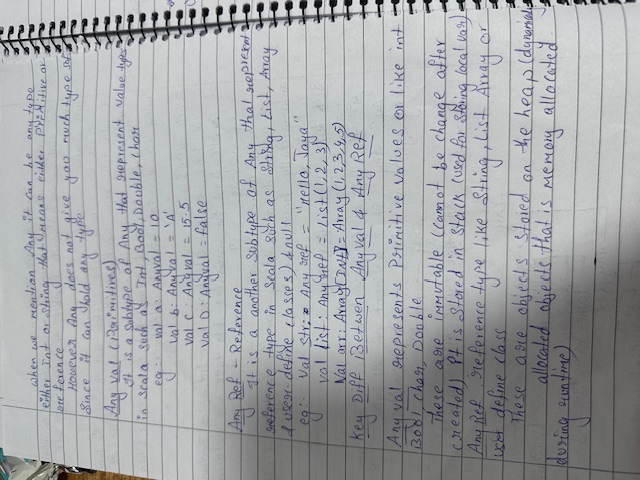 When we mention Any it can be any type
either Int or String that means either Primitive or
reference
However Any does not give you much type
Since it can hold any type
Any val (Primitives)
It is a subtype of Any that represent value types
in scala such as Int, Bool, Double, Char
eg:- val a: Anyval = 10
val b: Anyval = 'A'
val c: Anyval = 15.5
val D: Anyval = false
Any Ref - Reference
It is a another subtype of Any that represent
reference type in Scala such as String, List, Array
& user-define classes) & null
eg:- Val Str: Any ref = "Hello, Jaya"
val list: Any ref = List(1,2,3)
Val arr: Array[INt] = Array (1,2,3,4,5)
Key Diff Betwen Anyval & Any Ref
Any val represents Primitive values or like int
Bool, Char, Double
These are immutable (cannot be change after
created) It is stored in Stack (used for storing local var)
Any Ref reference type like String, List Array or
user define class
These are objects stored on the heap (dynamically
allocated objects that is memory allocated
during runtime)